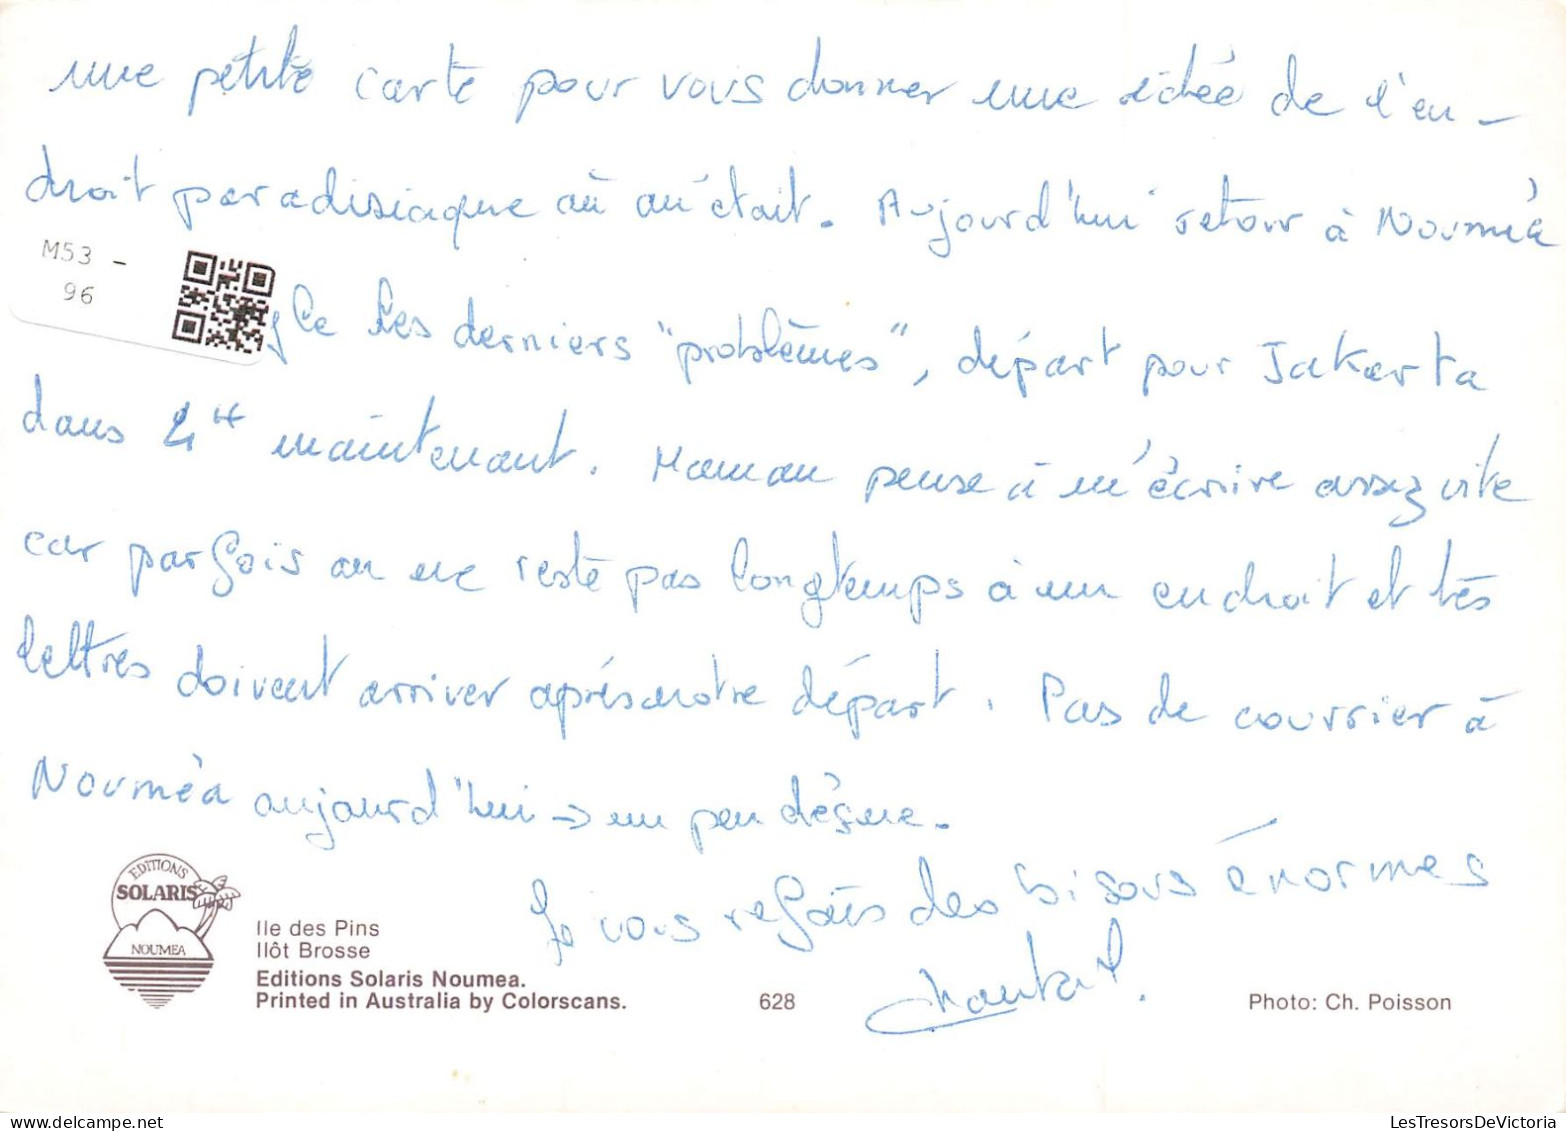 une petite carte pour vous donner une idée de l'en-
droit paradisiaque où on était. Aujourd'hui retour à Nouméa
M53 -
96
gle les derniers "problèmes", départ pour Jakarta
dans 4H maintenant. Maman pense à m'écrire assez vite
car parfois on ne reste pas longtemps à un endroit et tes
lettres doivent arriver après notre départ. Pas de courrier à
Nouméa aujourd'hui → un peu déçue.
Je vous refais des bisous énormes
Chantal.
EDITIONS
SOLARIS
NOUMEA
Ile des Pins
Ilôt Brosse
Editions Solaris Noumea.
Printed in Australia by Colorscans.
628
Photo: Ch. Poisson
LesTresorsDeVictoria